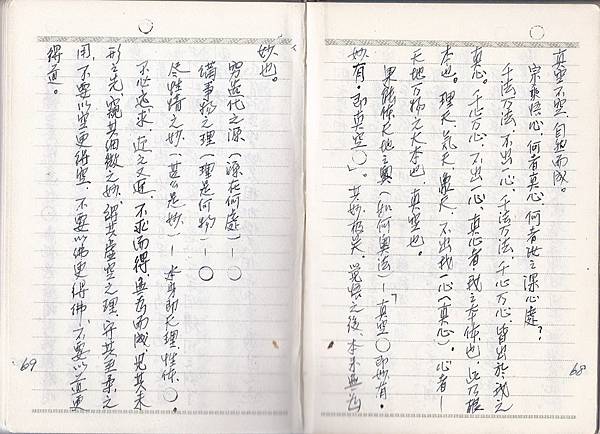 真空不空、自然而成。
宗乘悟心、何者真心、何者此之深心處？
千法万法、不出一心、千法万法、千心万心、皆出於我之
真心。千心万心、不出一心、真心者、我之本体也、此乃根
本也。理天、氣天、象天、不出我一心（真心）。心者—
天地万物之大本也、真空也。
果能体天地之奧（如何奧法）—真空○即妙有。
妙有即真空○」。其妙極矣、覺悟之後、本来無
妙也。
窮造化之源（源在何處）—○
備事物之理（理是何物）—○
尽性情之妙（甚么是妙）—本身即天理、性体、○。
不必遠求、近之又近、不求而得、無為而成、見其未
形之先、窺其細微之妙、得其虛空之理、守其至柔之
用、不要以空更得空、不要以佛更得佛、不要以道更
得道。
68
69